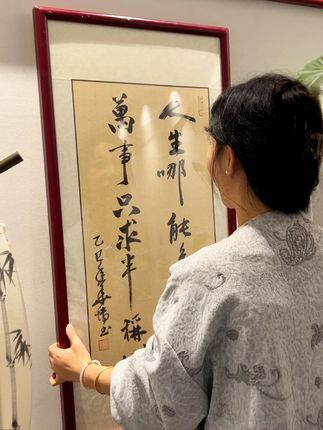 人生哪能
萬事只求半稱
乙巳年